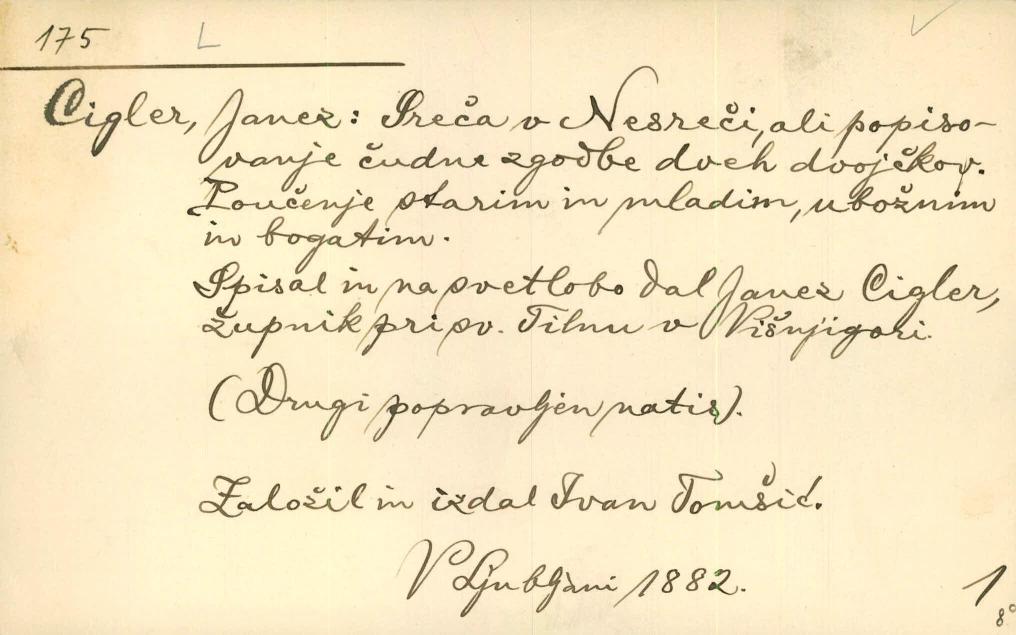 175 L
Cigler, Janez: Sreča v Nesreči, ali popiso-
vanje čudne zgodbe dveh dvojčkov.
Poučenje starim in mladim, ubožnim
in bogatim.
Spisal in na svetlobo dal Janez Cigler,
župnik pri sv. Tilnu v Višnjigori.
(Drugi popravljen natis).
Založil in izdal Ivan Tomšić.
V Ljubljani 1882.
1
8°